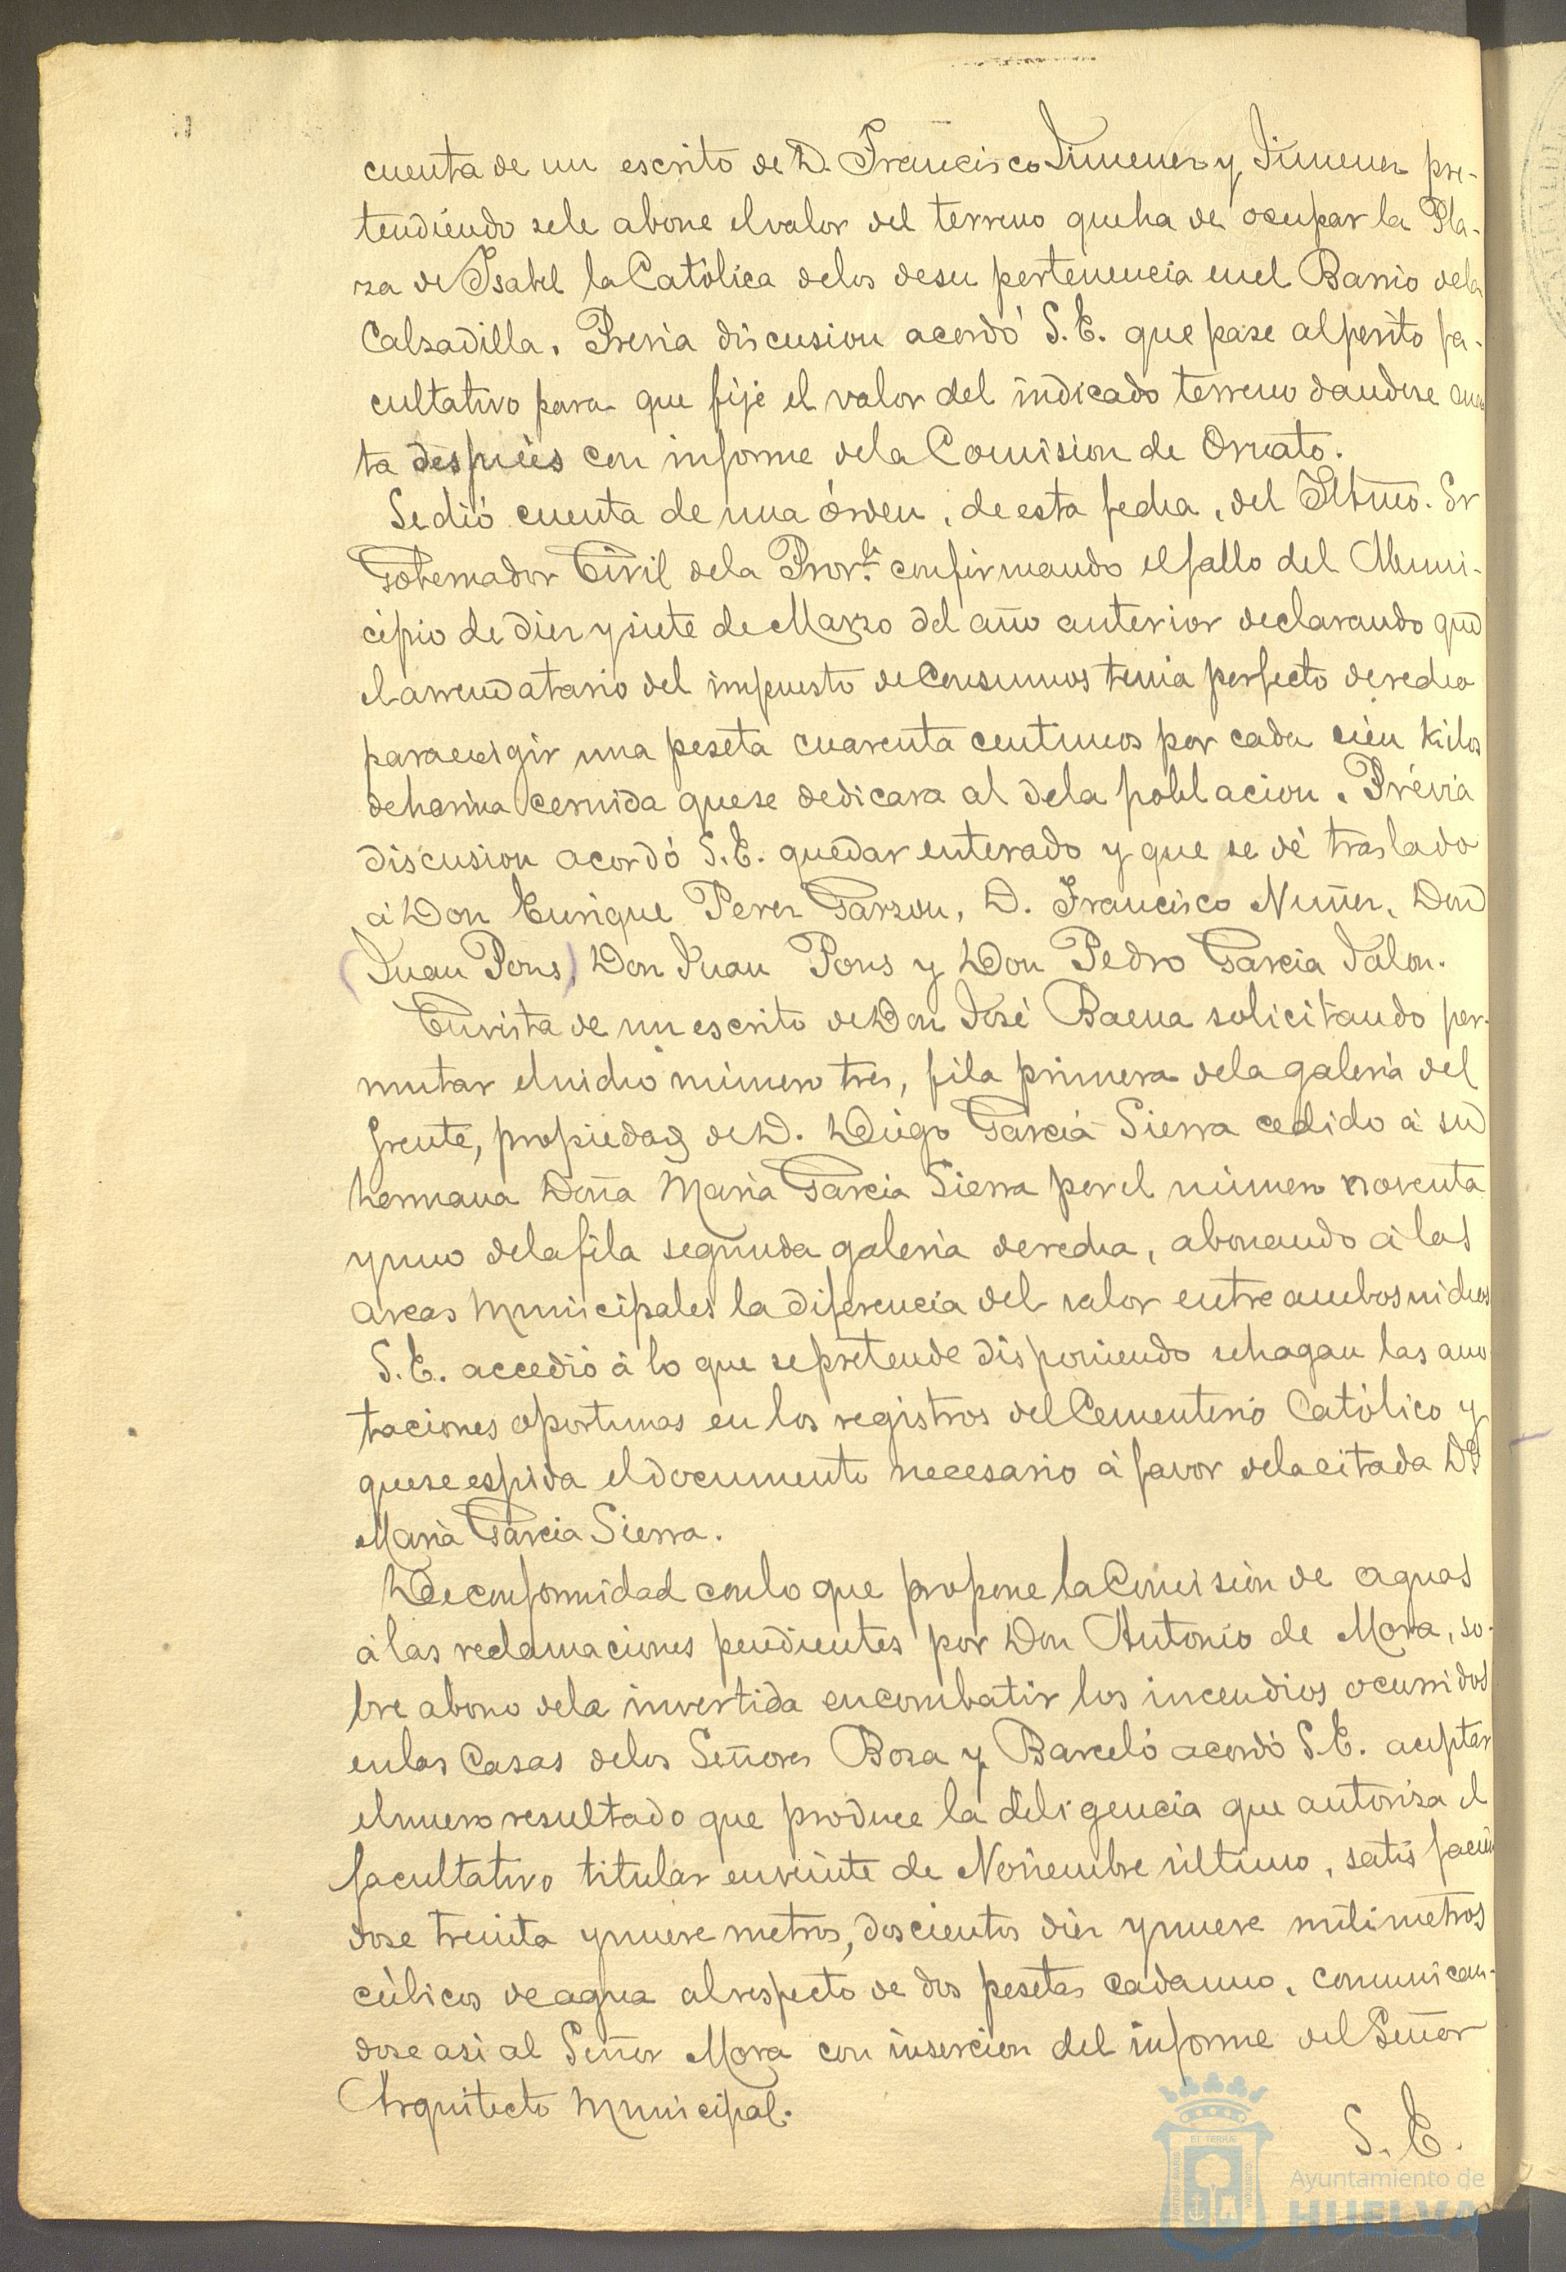 cuenta de un escrito de D. Francisco Jimenez y Jimenez pre-
tendiendo se le abone el valor del terreno que ha de ocupar la Pla-
za de Isabel la Católica de los de su pertenencia en el Barrio de la
Calzadilla. Previa discusion acordó S.E. que pase al perito fa-
cultativo para que fije el valor del indicado terreno dandose cuen
ta despues con informe de la Comision de Ornato.
Se dió cuenta de una órden, de esta fecha, del Iltmo. Sr
Gobernador Civil de la Provª. confirmando el fallo del Muni-
cipio de diez y siete de Marzo del año anterior declarando que
el arrendatario del impuesto de Consumos tenia perfecto derecho
para exigir una peseta cuarenta centimos por cada cien kilos
de harina cernida que se dedicara al de la poblacion. Prévia
discusion acordó S.E. quedar enterado y que se dé traslado
á Don Enrique Perez Garzon, D. Francisco Nuñez, Don
(Juan Pons) Don Juan Pons y Don Pedro Garcia Jalon.
En vista de un escrito de Don José Baena solicitando per-
mutar el nicho número tres, fila primera de la galeria del
frente, propiedad de D. Diego Garcia Sierra cedido á su
hermana Doña Maria Garcia Sierra por el número noventa
y uno de la fila segunda galeria derecha, abonando á las
arcas Municipales la diferencia del valor entre ambos nichos
S.E. accedió á lo que se pretende disponiendo se hagan las ano
taciones oportunas en los registros del Cementerio Católico y
que se espida el documento necesario á favor de la citada Dª
Maria Garcia Sierra.
De conformidad con lo que propone la Comision de aguas
á las reclamaciones pendientes por Don Antonio de Mora, so-
bre abono de la invertida en combatir los incendios ocurridos
en las Casas de los Señores Boza y Barceló acordó S.E. aceptar
el nuevo resultado que produce la diligencia que autoriza el
facultativo titular en veinte de Noviembre último, satisfacien
dose treinta y nueve metros, doscientos diez y nueve milimetros
cúbicos de agua al respecto de dos pesetas cada uno, comunican-
dose asi al Señor Mora con insercion del informe del Señor
Arquitecto Municipal.
S. E.
Ayuntamiento de
HUELVA